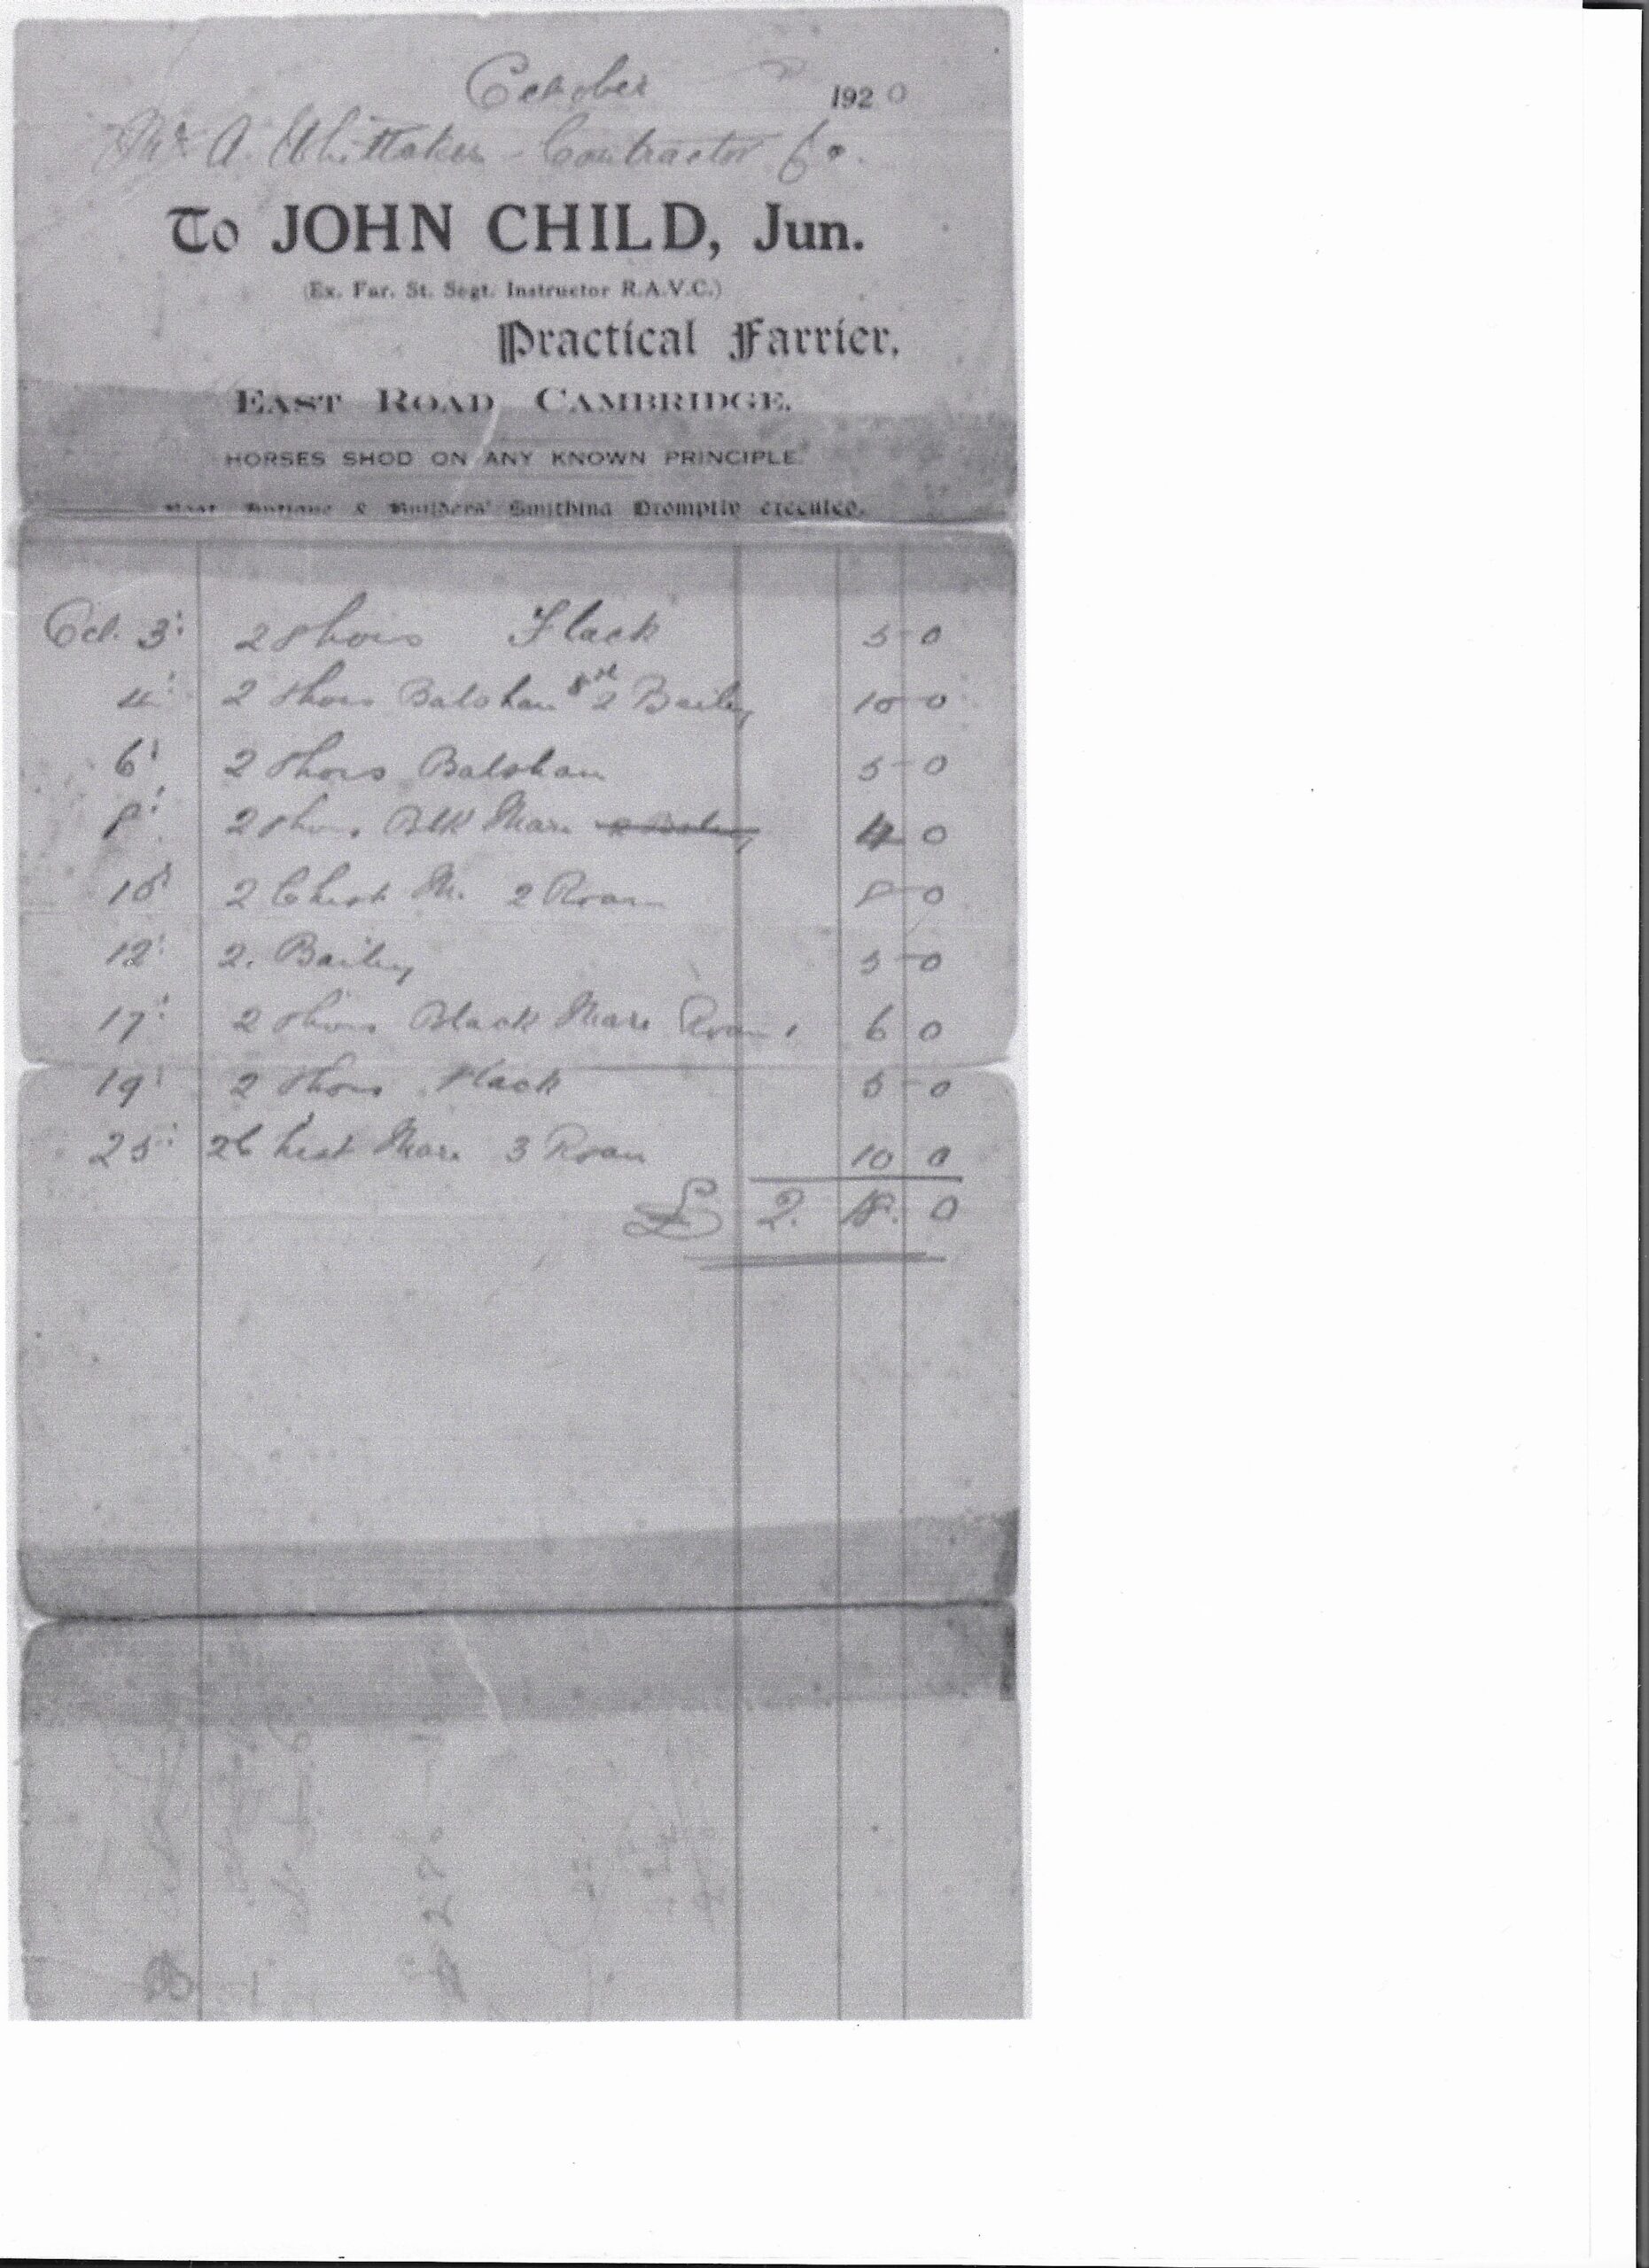 October 1920
Mr A. Whittaker Contractor Co.
To JOHN CHILD, Jun.
(Ex. Far. St. Segt. Instructor R.A.V.C.)
Practical Farrier,
EAST ROAD CAMBRIDGE.
HORSES SHOD ON ANY KNOWN PRINCIPLE.
& Builders' Smithing Promptly executed.
Oct. 3 2 Shoes Flack 5 0
4 2 Shoes Balsham 2 Bailey 10 0
6 2 Shoes Balsham 5 0
8 2 Shoes Blk Mare 4 0
10 2 Chest M. 2 Roan 8 0
12 2. Bailey 5 0
17 2 Shoes Black Mare Roan 1 6 0
19 2 Shoes Flack 5 0
25 2 Chest Mare 3 Roan 10 0
£ 2. 18. 0